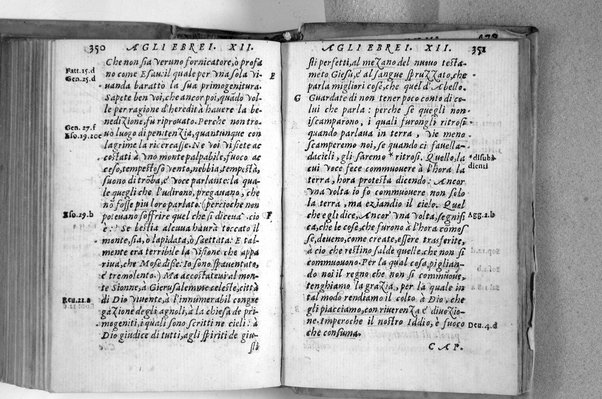 350 AGLI EBREI. XII.
Che non sia veruno fornicatore, ò profa
no come Esau: il quale per vna sola vi- E
Fatt. 15. d
uanda baratto la sua primogenitura.
Gen. 25. d
Sapete ben voi, che ancor poi, quádo vol
le per ragione d'heredità hauere la be-
nedizione, fu riprouato. Perche non tro
uò luogo di penitenzia, quantunque con
Gen. 27. f
lagrime la ricercasse. Ne voi vi siete ac
Eso. 19. 20 c
costati à vno monte palpabile, fuoco ac
ceso, tempestoso vento, nebbia, tempesta,
suono di tróba, e voce parlante: la qua
le quegli che l'udirono, pregarono, che
nō fosse piu loro parlato. (percioche non
poteuano soffrire quel che si diceua. cio F
Eso. 19. b
è: Se bestia alcuna haurà toccato il
monte, sia, ò lapidata, ò saettata: E tal-
mente era terribile la visione che appa
riua, che Mose disse: Io sono spauentato,
e tremolento.) Ma accostati vi al mon-
te Sionne, à Gierusalemme celeste, città
di Dio viuente, à l'innumerabil congre
Reu. 21. a
gazione degli agnoli, à la chiesa de pri-
mogeniti, i quali sono scritti ne cieli: à
Dio giudice di tutti, agli spiriti de giu-
sti
AGLI EBREI. XII. 351
sti perfetti, al mezano del nuouo testa-
mēto Giesù, e al sangue spruzzato, che
parla migliori cose, che quel d'Abello.
G Guardate di non tener poco conto di co-
lui che parla: perche se quegli non
iscamparono, i quali furongli ritrosi
quando parlaua in terra, vie meno
scamperemo noi, se quando ci fauella-
da cieli, gli saremo * ritrosi. Quello, la
* disubi
dienti
cui voce fece commuouere à l'hora la
terra, hora protesta dicendo: Ancor
vna volta io fo commuouere non solo
la terra, ma eziandio il cielo. Quel
che egli dice, Ancor' vna volta, segnifi
Agg. 1. b
ca, che le cose, che furono à l'hora cōmos
se, deueno, come create, essere trasferite,
à cio che restino salde quelle, che non si
commuouono. Per la qual cosa, piglian-
do noi il regno che non si commuoue,
tenghiamo la grazia, per la quale in
tal modo rendiamo il colto à Dio, che
gli piacciamo, con riuerenza e diuozio-
ne. Imperoche il nostro Iddio, è fuoco
Deu. 4. d
che consuma.
CAP.